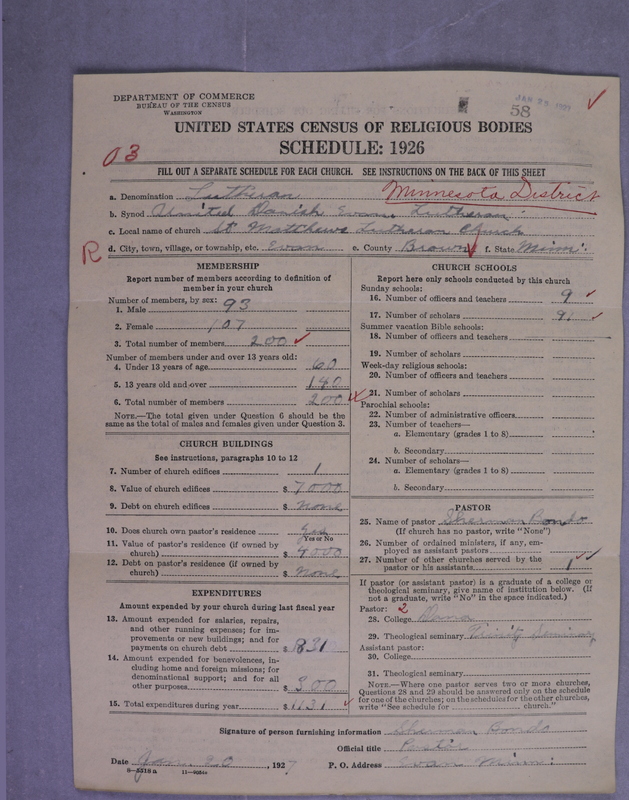 DEPARTMENT OF COMMERCE
BUREAU OF THE CENSUS
WASHINGTON
58
UNITED STATES CENSUS OF RELIGIOUS BODIES
SCHEDULE: 1926
03
FILL OUT A SEPARATE SCHEDULE FOR EACH CHURCH. SEE INSTRUCTIONS ON THE BACK OF THIS SHEET
a. Denomination Lutheran Minnesota District
b. Synod United Danish Evan. Lutheran
c. Local name of church St Matthews Lutheran Church
R
d. City, town, village, or township, etc. Evan e. County Brown f. State Minn.
MEMBERSHIP
Report number of members according to definition of member in your church
Number of members, by sex:
1. Male 93
2. Female 107
3. Total number of members 200
Number of members under and over 13 years old:
4. Under 13 years of age 60
5. 13 years old and over 140
6. Total number of members 200
NOTE.—The total given under Question 6 should be the same as the total of males and females given under Question 3.
CHURCH BUILDINGS
See instructions, paragraphs 10 to 12
7. Number of church edifices 1
8. Value of church edifices $ 7000
9. Debt on church edifices $ None
10. Does church own pastor's residence Yes
Yes or No
11. Value of pastor's residence (if owned by church) $ 4000
12. Debt on pastor's residence (if owned by church) $ None
EXPENDITURES
Amount expended by your church during last fiscal year
13. Amount expended for salaries, repairs, and other running expenses; for improvements or new buildings; and for payments on church debt $ 831
14. Amount expended for benevolences, including home and foreign missions; for denominational support; and for all other purposes $ 300
15. Total expenditures during year $ 1131
CHURCH SCHOOLS
Report here only schools conducted by this church
Sunday schools:
16. Number of officers and teachers 9
17. Number of scholars 91
Summer vacation Bible schools:
18. Number of officers and teachers
19. Number of scholars
Week-day religious schools:
20. Number of officers and teachers
21. Number of scholars
Parochial schools:
22. Number of administrative officers
23. Number of teachers—
a. Elementary (grades 1 to 8)
b. Secondary
24. Number of scholars—
a. Elementary (grades 1 to 8)
b. Secondary
PASTOR
25. Name of pastor Sherman Bondo
(If church has no pastor, write "None")
26. Number of ordained ministers, if any, employed as assistant pastors
27. Number of other churches served by the pastor or his assistants 1
If pastor (or assistant pastor) is a graduate of a college or theological seminary, give name of institution below. (If not a graduate, write "No" in the space indicated.)
Pastor: 2
28. College Dana
29. Theological seminary Trinity Seminary
Assistant pastor:
30. College
31. Theological seminary
NOTE.—Where one pastor serves two or more churches, Questions 28 and 29 should be answered only on the schedule for one of the churches; on the schedules for the other churches, write "See schedule for church."
Signature of person furnishing information Sherman Bondo
Official title Pastor
Date Jan. 20, 1927 P. O. Address Evan Minn.
8—5318a 11—9034